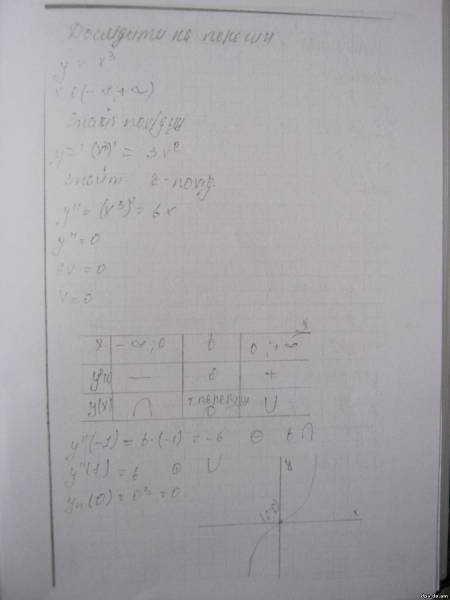 Дослідити на перегин
y = x³
x ∈ (-∞, +∞)
Знайт похідну
y' = (x³)' = 3x²
Знайт. 2-похід.
y'' = (x³)'' = 6x
y'' = 0
6x = 0
x = 0
x
x -∞; 0 0 0; +∞
— 0 +
y(x) ∩ т. перегину 0 ∪
y''(-1) = 6·(-1) = -6 ⊖ ∩
y''(1) = 6 ⊕ ∪
(0) = 0³ = 0
y
x
(0;0)